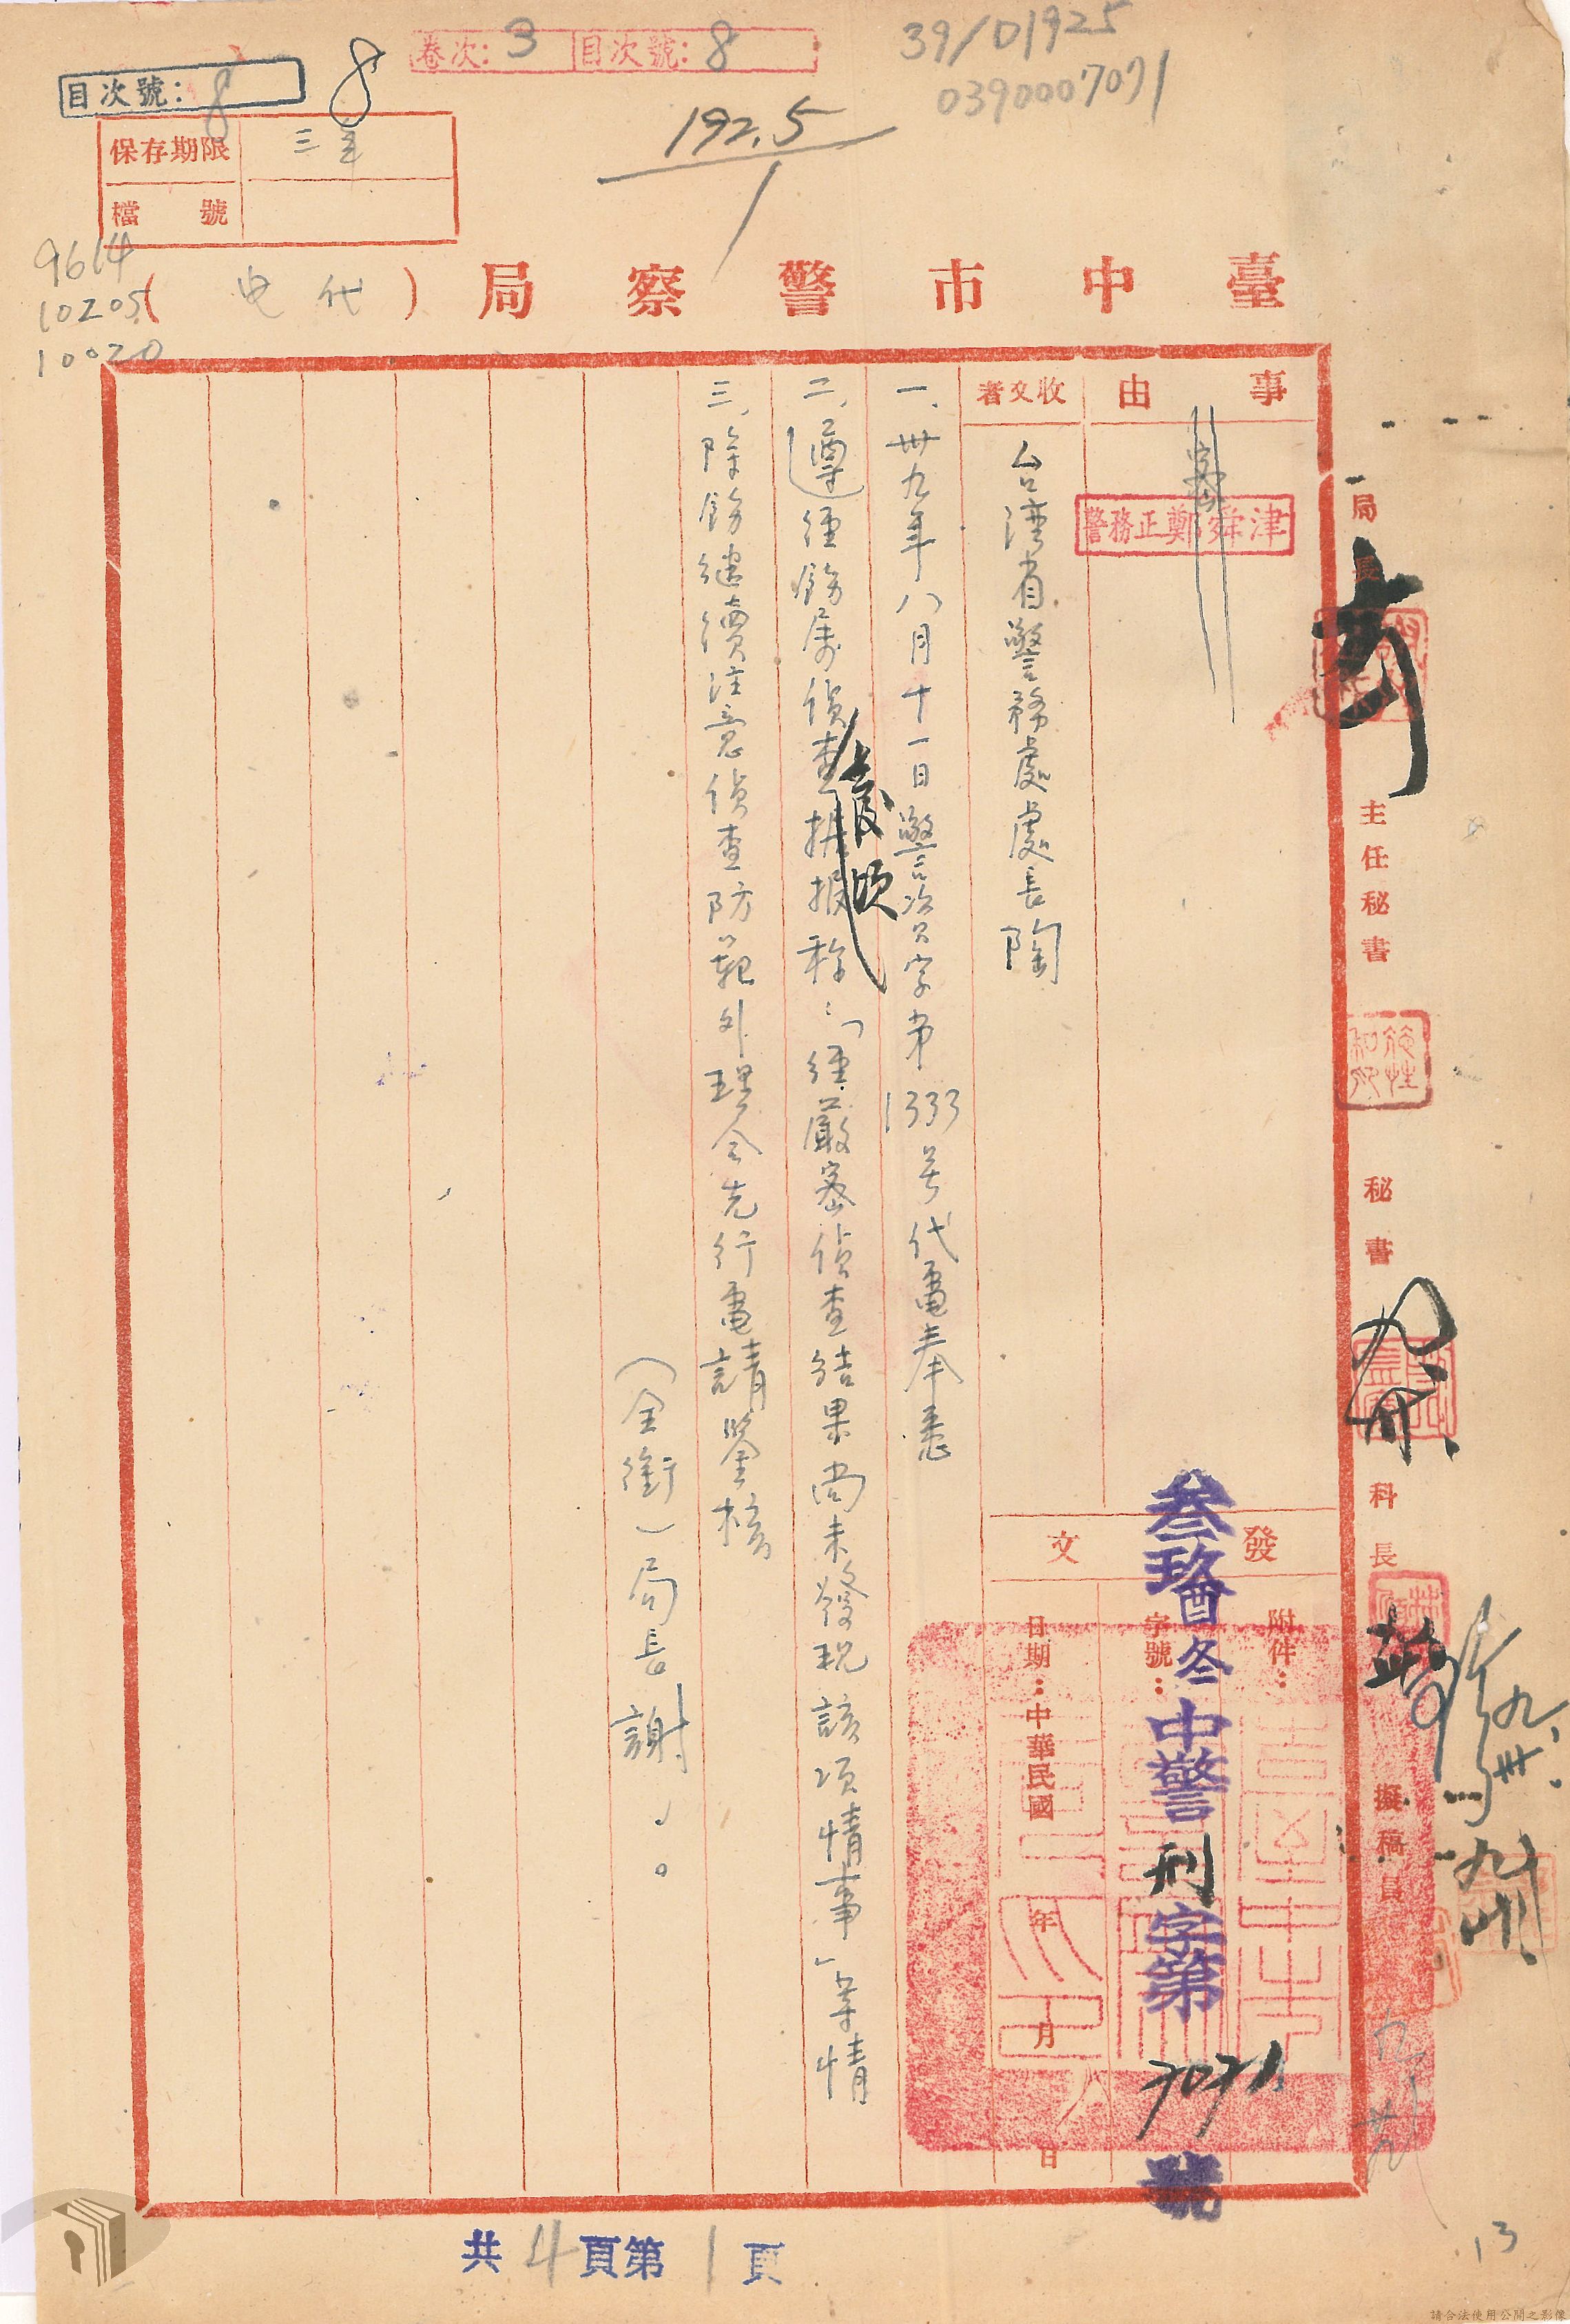 卷次：3 目次號：8
39/01925
0390007071
目次號：8
8
192.5
1
保存期限 三年
檔號
9614
10205
10020
臺中市警察局（代电）
事由
密
警務正鄭舜津
收文者
台湾省警務處處長陶
發文
附件：
字號：
叁玖酉冬中警刑字第7071號
日期：中華民國 年 月 日
一、卅九年八月十一日警資字第1333号代電奉悉
二、遵經飭屬偵查據報称：「經嚴密偵查結果尚未發現該項情事」等情
去後頃
三、除飭繼續注意偵查防範外理合先行電請鑒核
（全銜）局長謝
局長
主任秘書
秘書
科長
擬稿員
共4頁第1頁
13
請合法使用公開之影像